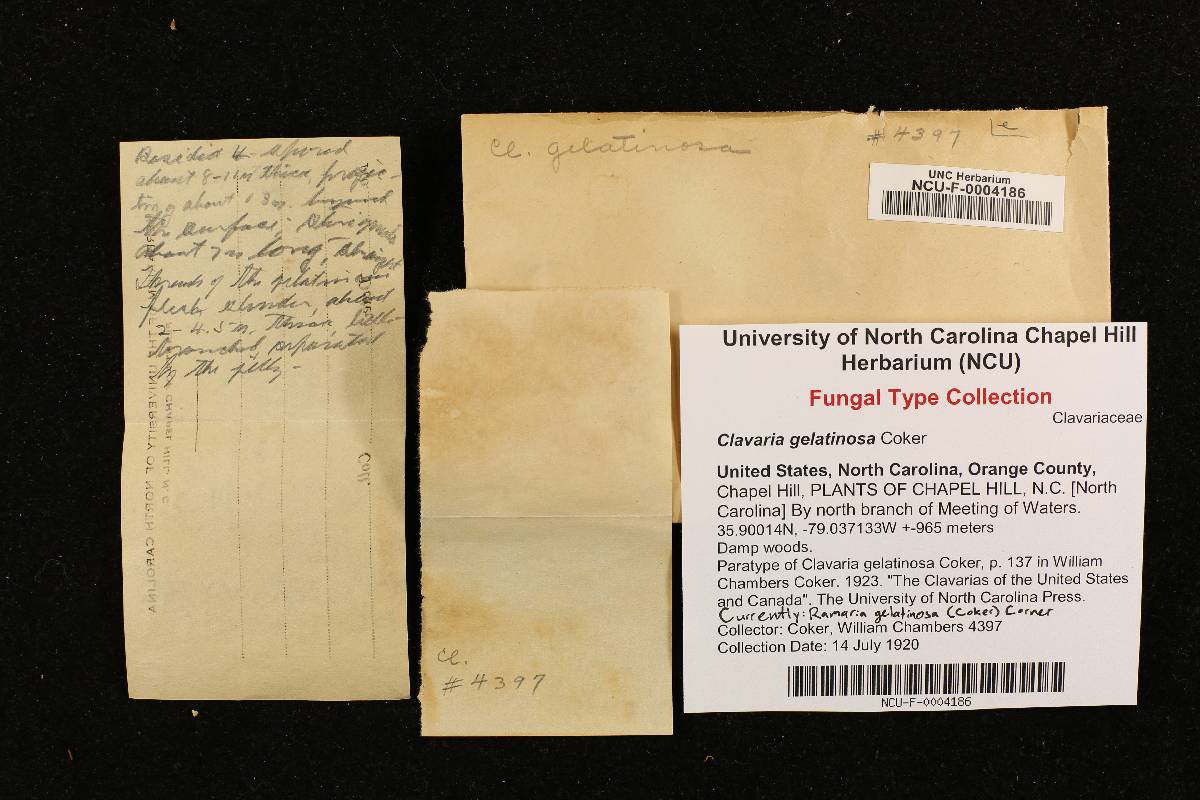 Basidia 4-spored
about 8-11µ thick, projec-
ting about 18µ. beyond
the surface; sterigmata
about 7µ long, straight
threads of the gelatinous
flesh slender, about
2-4.5µ. thick little
branched, separated
by the jelly-
Cl. gelatinosa
#4397
UNC Herbarium
NCU-F-0004186
Cl.
#4397
University of North Carolina Chapel Hill
Herbarium (NCU)
Fungal Type Collection
Clavariaceae
Clavaria gelatinosa Coker
United States, North Carolina, Orange County,
Chapel Hill, PLANTS OF CHAPEL HILL, N.C. [North
Carolina] By north branch of Meeting of Waters.
35.90014N, -79.037133W +-965 meters
Damp woods.
Paratype of Clavaria gelatinosa Coker, p. 137 in William
Chambers Coker. 1923. "The Clavarias of the United States
and Canada". The University of North Carolina Press.
Currently: Ramaria gelatinosa (Coker) Corner
Collector: Coker, William Chambers 4397
Collection Date: 14 July 1920
NCU-F-0004186